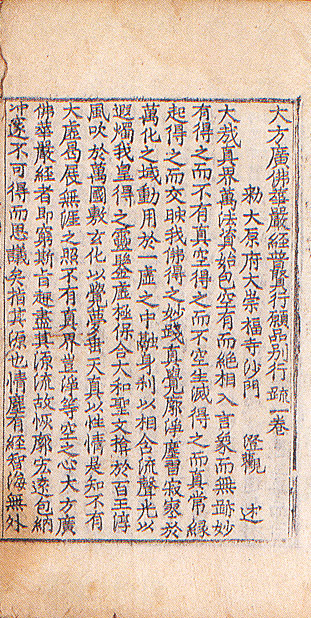 大方廣佛華嚴經普賢行願品別行疏一卷
勅大原府大崇福寺沙門 澄觀 述
大哉真界萬法資始包空有而絕相入言象而無跡妙
有得之而不有真空得之而不空生滅得之而真常緣
起得之而交映我佛得之妙踐真覺廓淨塵習寂寥於
萬化之域動用於一虛之中融身刹以相含流聲光以
遐燭我皇得之靈鑒虛極保合大和聖文掩於百王淳
風吹於萬國敷玄化以覺夢垂天真以性情是知不有
大虛曷展無涯之照不有真界豈淨等空之心大方廣
佛華嚴經者即窮斯旨趣盡其源流故恢廓宏遠包納
冲邃不可得而思議矣指其源也情塵有經智海無外